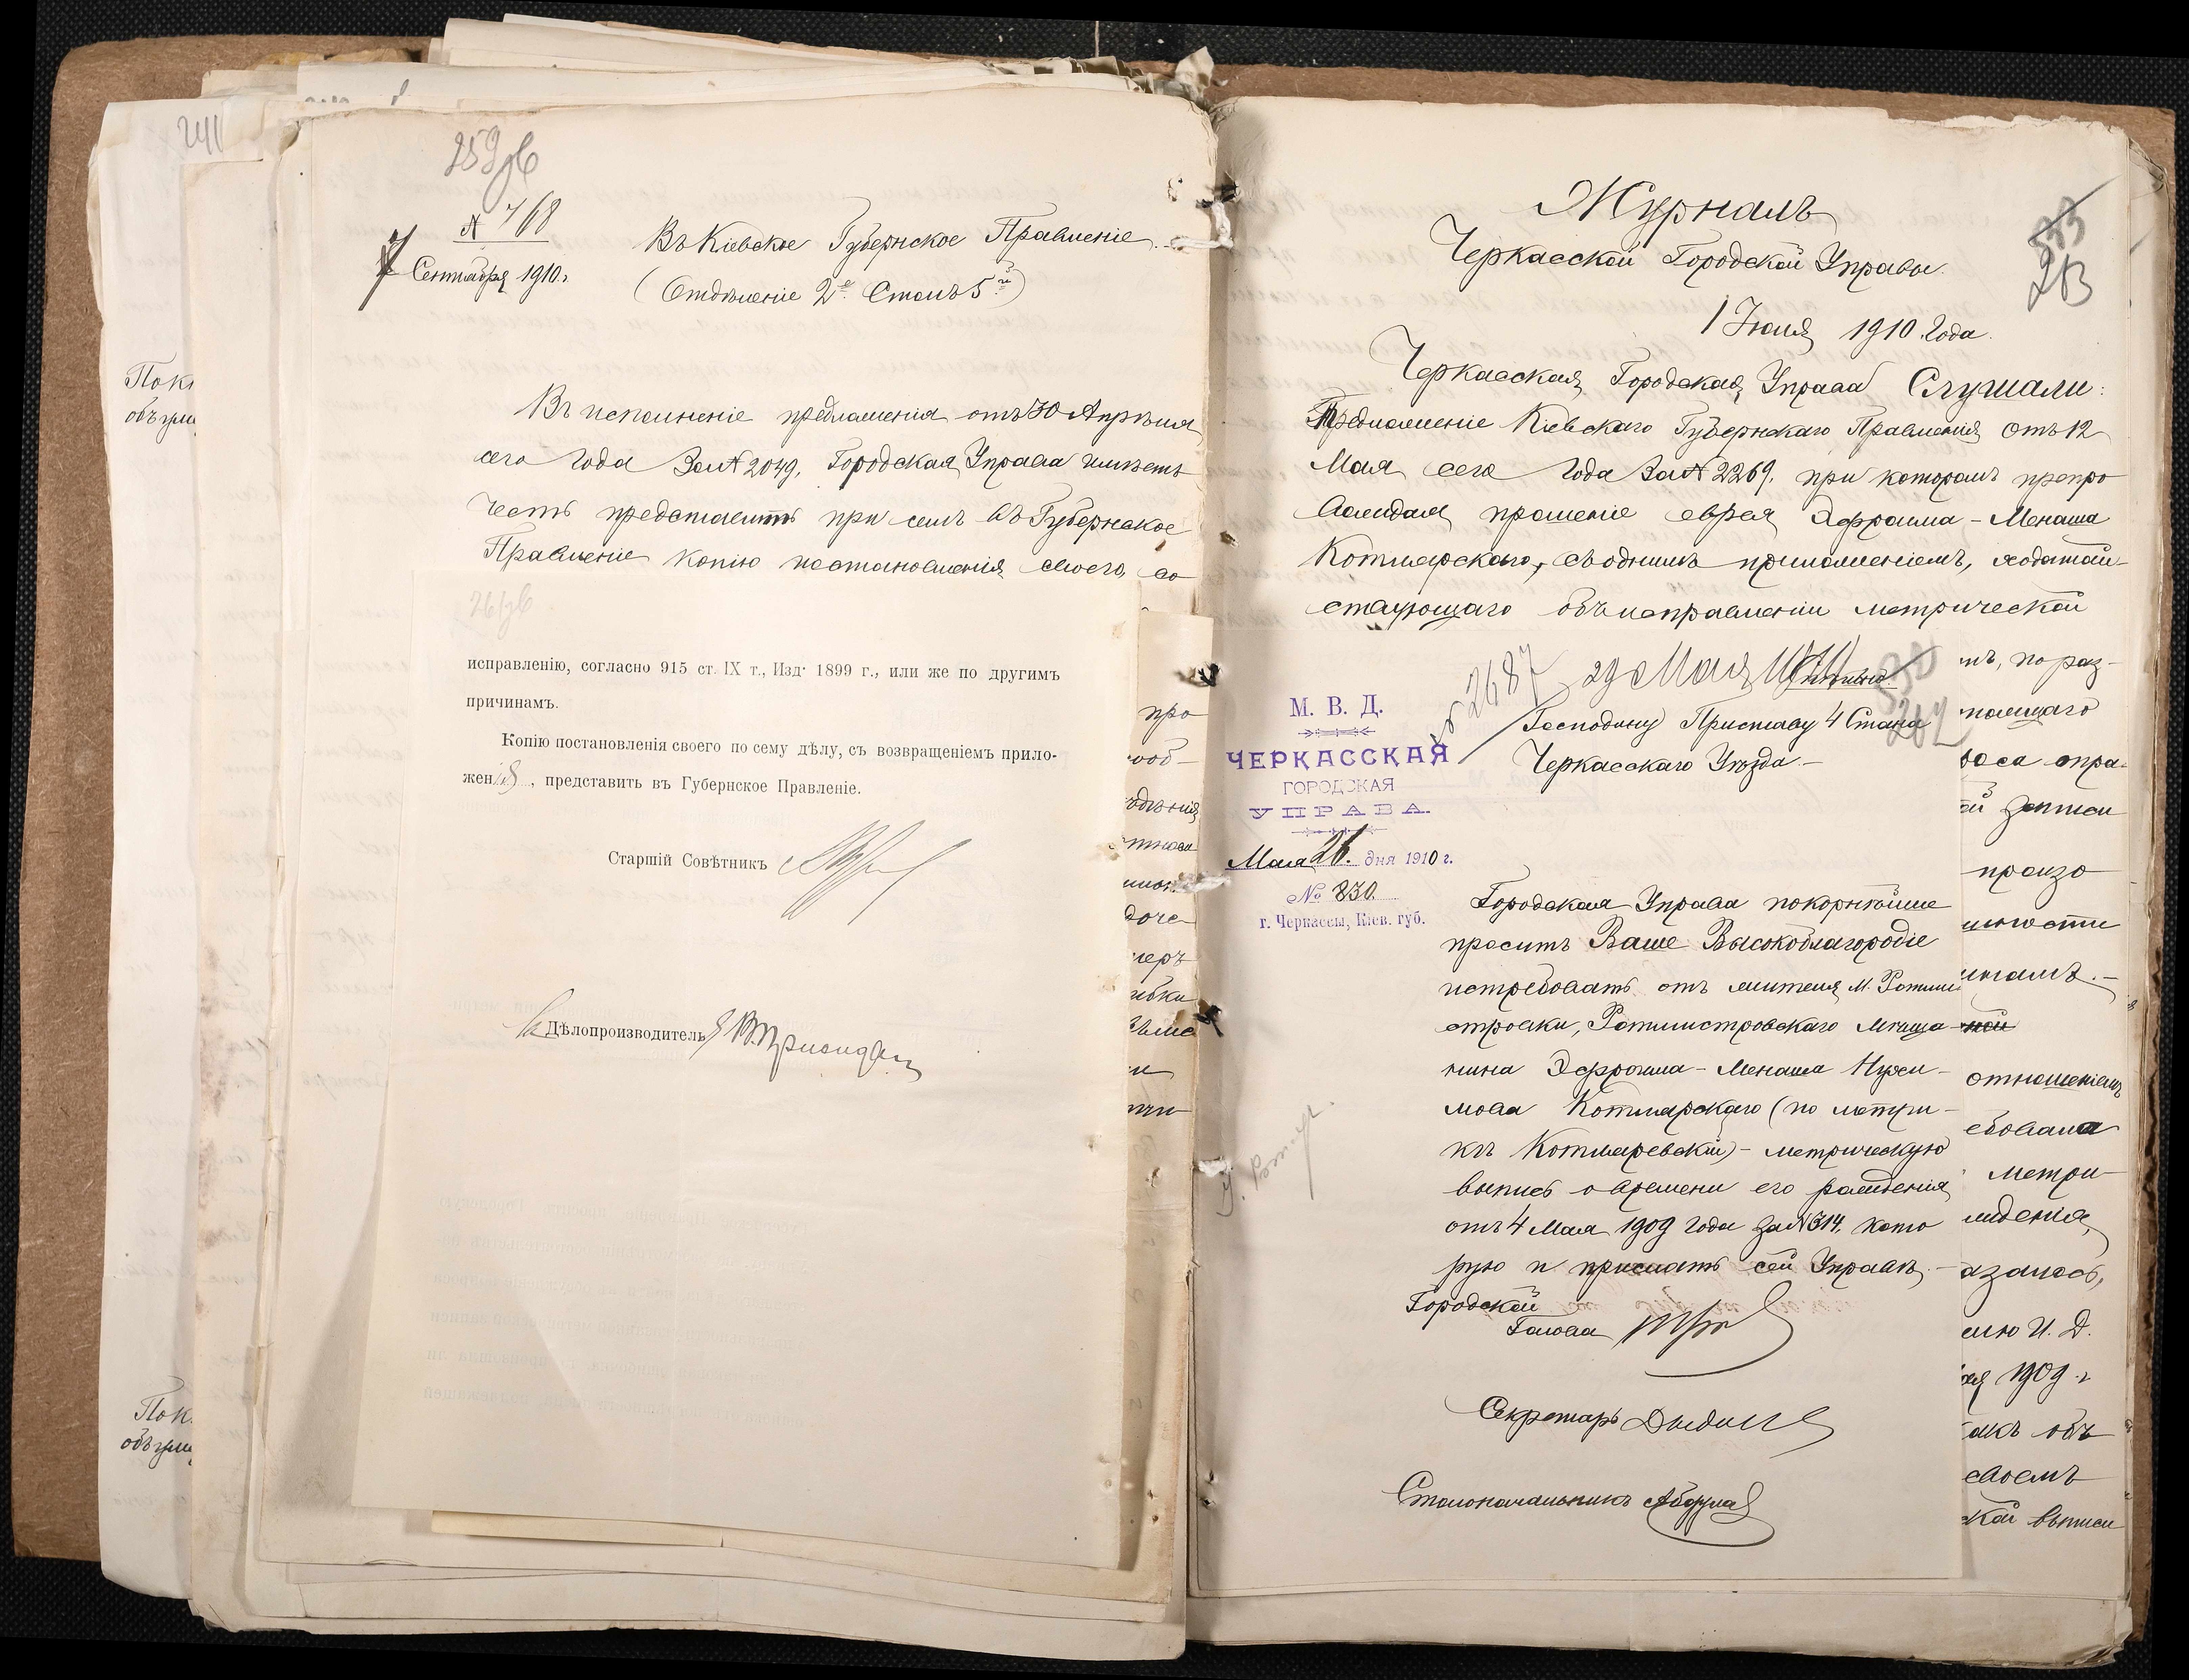 241
Покі
объуми
Пок
объуми
259об
№ 768
7 Сентября 1910 г.
Въ Кіевское Губернское Правленіе.
(Отдѣленіе 2е. Столъ 5й)
Въ исполненіе предложенія отъ 30 Апрѣля
сего года за № 2049, Городская Управа имѣетъ
честь представить при семъ въ Губернское
Правленіе копію постановленія своего, со
261об
исправленію, согласно 915 ст. IX т., Изд. 1899 г., или же по другимъ
причинамъ.
Копію постановленія своего по сему дѣлу, съ возвращеніемъ прило-
женія, представить въ Губернское Правленіе.
Старшій Совѣтникъ
Дѣлопроизводитель
про
ооб-
доче
черъ
ибки
Журналъ
Черкасской Городской Управы.
333
263
1 Іюня 1910 года.
Черкасская Городская Управа Слушали:
Предложеніе Кіевскаго Губернскаго Правленія отъ 12
Мая сего года за № 2269, при которомъ препро
вождая прошеніе еврея Эфроима-Менаша
Котлярскаго, съ однимъ приложеніемъ, ходатай-
ствующаго объ исправленіи метрической
№ 2687
29 Мая
262
Господину Приставу 4 Стана
Черкасскаго Уѣзда.-
М. В. Д.
ЧЕРКАССКАЯ
ГОРОДСКАЯ
УПРАВА.
Мая 26. дня 1910 г.
№ 830.
г. Черкассы, Кіев. губ.
Городская Управа покорнѣйше
проситъ Ваше Высокоблагородіе
истребовать отъ жителя м. Ротми
стровки, Ротмистровскаго мѣща
нина Эфроима-Менаша Нухи-
мова Котлярскаго (по метри-
къ Котляревскій)- метрическую
выпись о времени его рожденія
отъ 4 Мая 1909 года за № 314, кото
рую и прислать сей Управѣ.-
Городской
Голова
Секретарь
Столоначальникъ
мъ, по раз-
лежащаго
роса опра-
ой записи
произо
отношеніемъ
ебовала
метри-
жденія,
азалось,
елю И. Д.
ая 1909 г.
акъ объ
своемъ
ской выписи